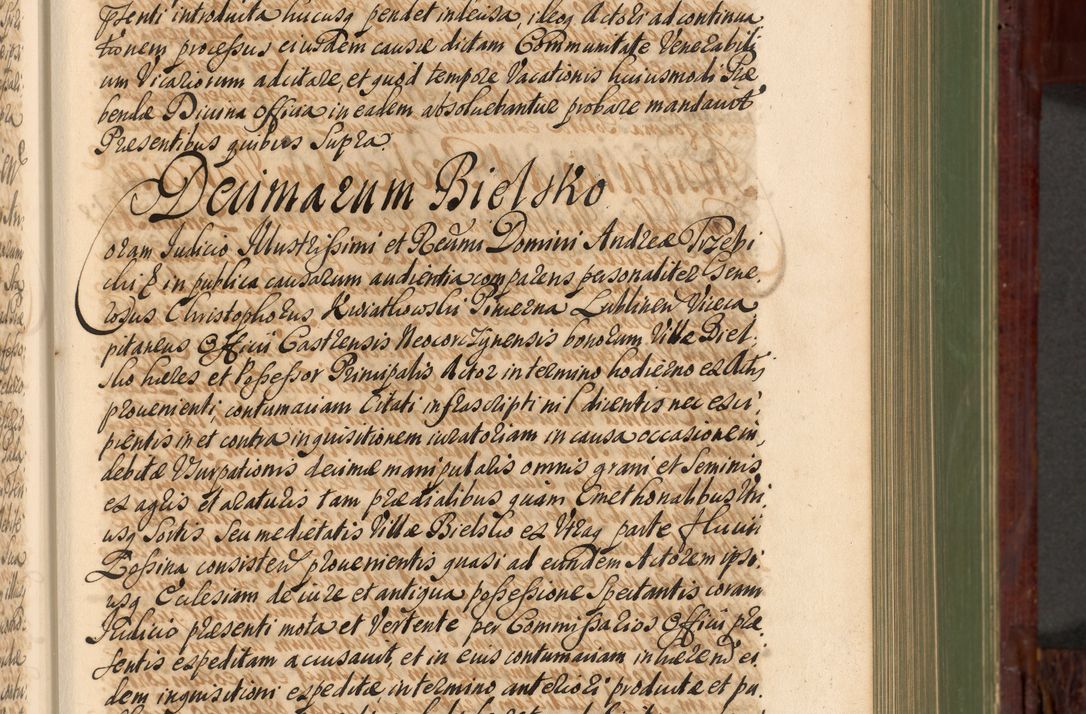 psenti introducta hucusq pendet indecisa, ideoq Actori ad continua
tionem processus eiusdem causæ dictam Communitate Venerabili
um Vicariorum adcitare, et quod tempore Vacationis huiusmodi Præ
bendæ Diuina Officia in eadem absoluebantur probare mandauit
Præsentibus quibus Supra.
Decimarum Bielsko
oram Iudicio Illustrissimi et Reumi Domini Andreæ Trzebi
cki & in publica causarum audientia comparens personaliter Gene
rosus Christophorus Kwiatkowski Pincerna Lublinen Viceca
pitaneus Officii Castrensis Neocorzynensis bonorum Villæ Biel
sko hæres et Possessor Principalis Actor in termino hodierno ex Actis
prouenienti, contumaciam Citati infrascripti nil dicentis nec exci
pientis in et contra inquisitionem curatoriam in causa occasione in
debitæ Vsurpationis decimæ manipularis omnis grani et Seminis
ex agris et araturis tam prædialibus quam Cmethonalibus Vtri
usq Sortis Seu medietatis Villæ Bielsko ex Vtraq parte fluuii
consisten prouenientis quasi ad eundem Actorem ipsi
usq Ecclesiam de iure et antiqua possessione Spectantis coram
Iudicio præsenti mota et Vertente per Commissarios Officii præ
sentis expeditam accusauit, et in eius contumaciam inhæren ei
dem inquisitioni expeditæ in termino anteriori productæ et pu